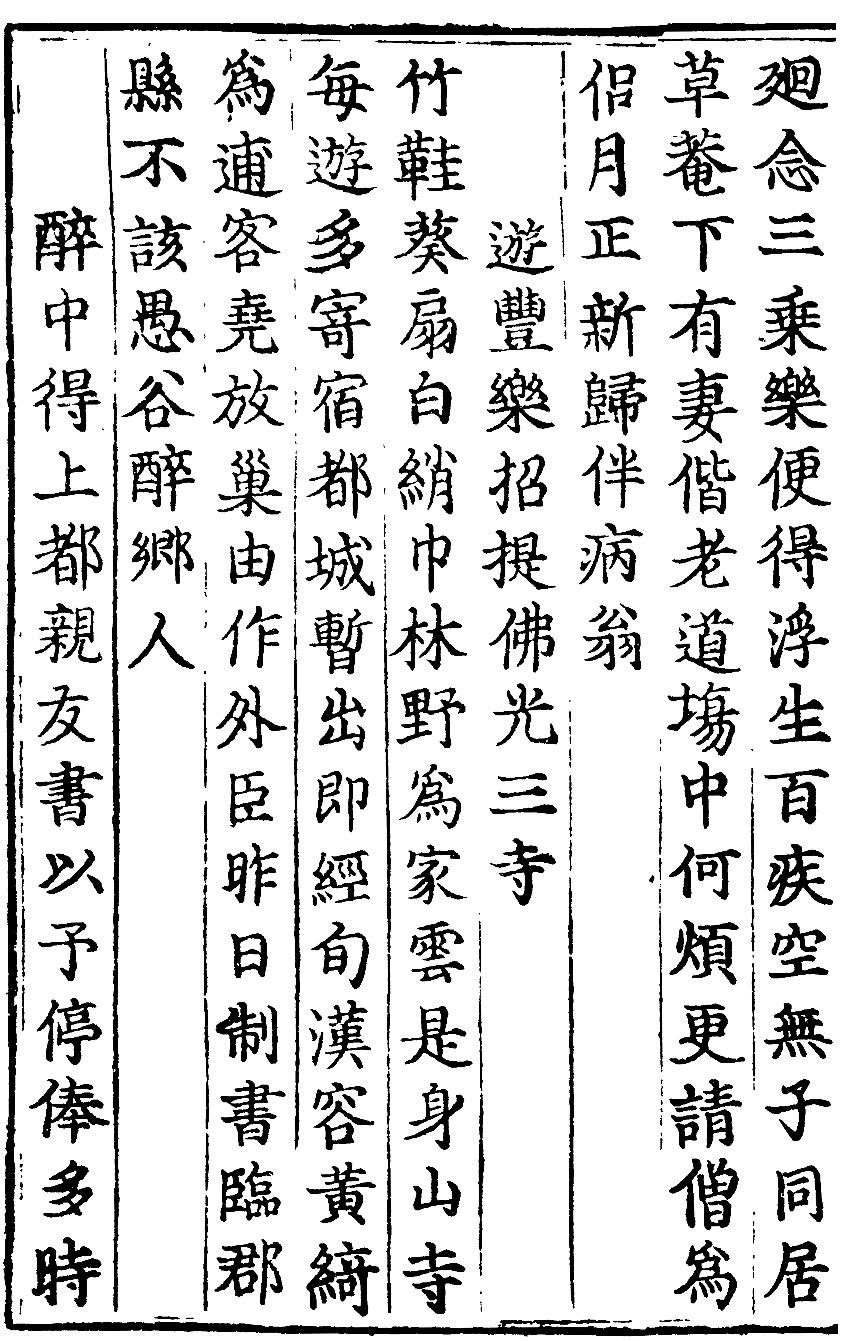 廻念三乘樂便得浮生百疾空無子同居
草菴下有妻偕老道塲中何煩更請僧爲
侣月正新歸伴病翁
遊豐樂招提佛光三寺
竹鞋葵扇白綃巾林野爲家雲是身山寺
每遊多寄宿都城暫出即經旬漢容黃綺
爲逋客堯放巢由作外臣昨日制書臨郡
縣不該愚谷醉鄉人
醉中得上都親友書以予停俸多時